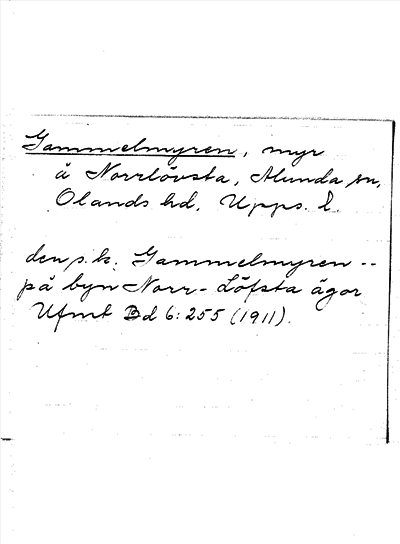 Gammelmyren, myr
å Norrlövsta, Alunda sn,
Olands hd, Upps. l.
den s.k. Gammelmyren --
på byn Norr-Löfsta ägor
Ufmt Bd 6:255 (1911).